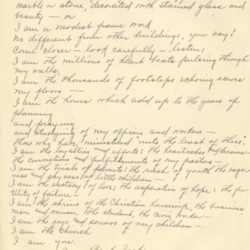 marble or stone, decorated with stained glass and
beauty — or
I am a modest frame work
No different from other buildings, you say?
Come closer — look carefully — listen;
I am the millions of heart beats pulsing through
my walls.
I am the thousands of footsteps echoing across
my floors —
I am the hours which add up to the years of
planning
and praying
and studying of my officers and workers —
Those who have ministered unto the least of these:
I am the laughter of my the heartache
the convictions and fulfillments of my pastors —
I am the goals of the ideals of youth the eager-
ness and of my children
I am the ecstacy of love; the aspiration of hope; the fu-
tility of failure.
I am the shrine of the Christian the business
man and woman the student, the
I am the joys and sorrows of my children —
I am the Church
I am you.